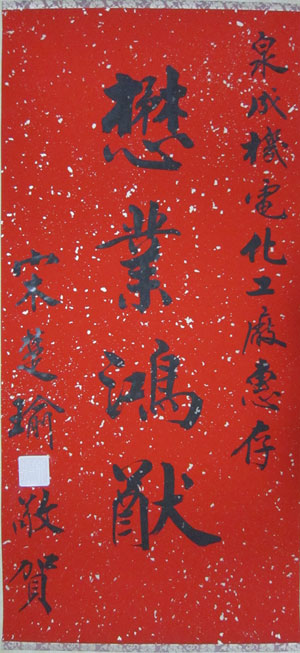 泉成機電化工廠惠存
懋業鴻猷
宋楚瑜敬賀